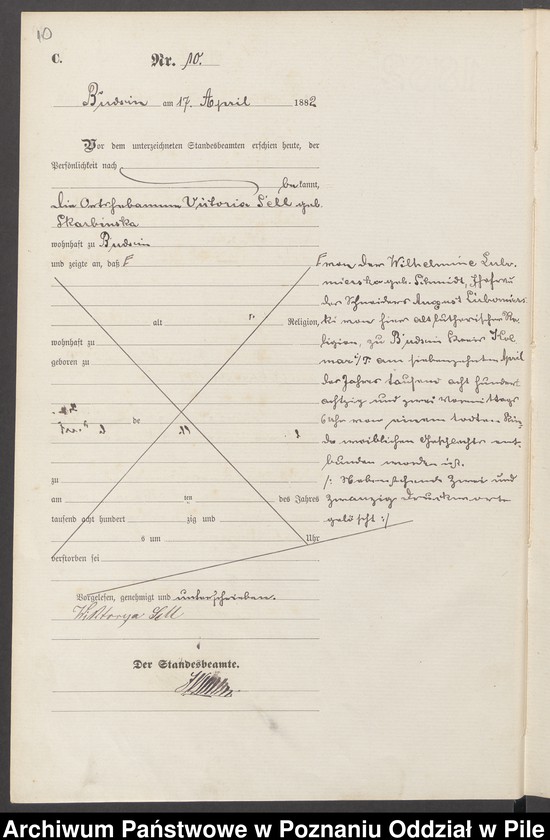 10
C.
Nr. 10.
Budsin am 17. April 1882
Vor dem unterzeichneten Standesbeamten erschien heute, der
Persönlichkeit nach
bekannt,
die Ortshebamme Viktoria Sell geb.
Skarbinska
wohnhaft zu Budsin
und zeigte an, daß F
F von der Wilhelmine Lubo-
mierska geb. Schmidt, Ehefrau
des Schneiders August Lubomirs-
ki von hier altlutherischer Re-
ligion, zu Budsin Kreis Kol-
mar i/P. am siebenzehnten April
des Jahres tausend acht hundert
achtzig und zwei Vormittags
Uhr von einem todten Kin-
de weiblichen Geschlechts ent-
bunden worden ist.
/: Nebenstehende Zwei und
zwanzig Druckworte
gelöscht :/
alt Religion,
wohnhaft zu
geboren zu
de
zu
am des Jahres
tausend acht hundert zig und
s um Uhr
verstorben sei
Vorgelesen, genehmigt und unterschrieben.
Wiktorya Sell
Der Standesbeamte.
Archiwum Państwowe w Poznaniu Oddział w Pile